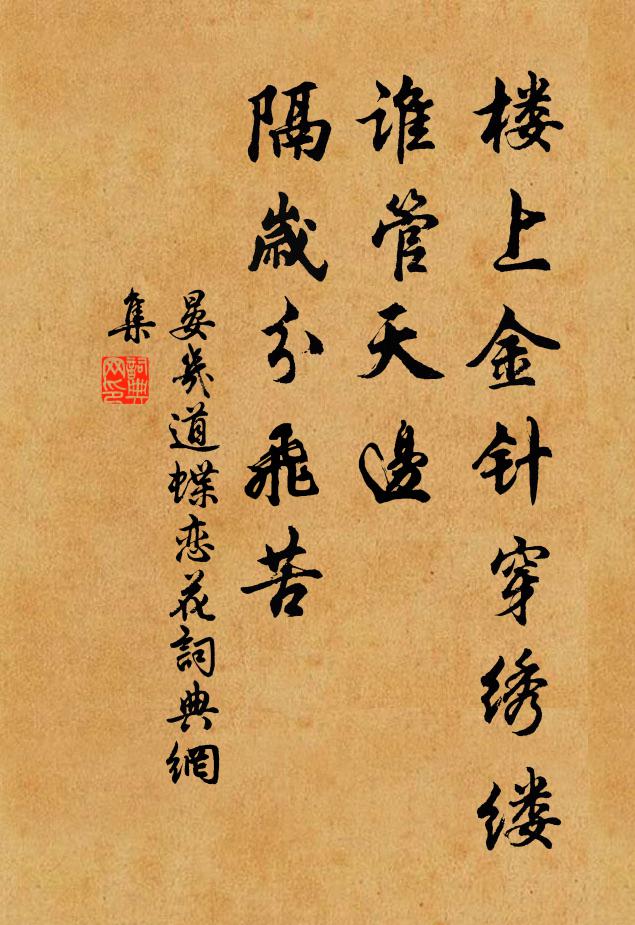 楼上金针穿绣缕
谁管天邊
隔歲分飛苦
晏幾道蝶恋花詞典網
集
詞典
网印